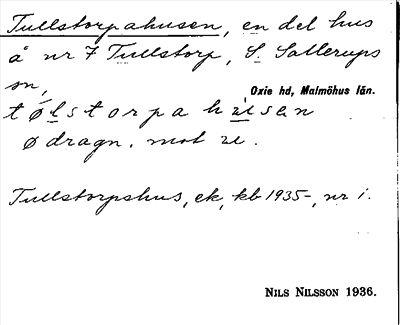 Tullstorpahusen, en del hus
å nr 7 Tullstorp, S. Sallerups
sn,
Oxie hd, Malmöhus län.
tølstorpahusen
ø dragn. mot
Tullstorpshus, ek, kb 1935-, nr 1.
NILS NILSSON 1936.